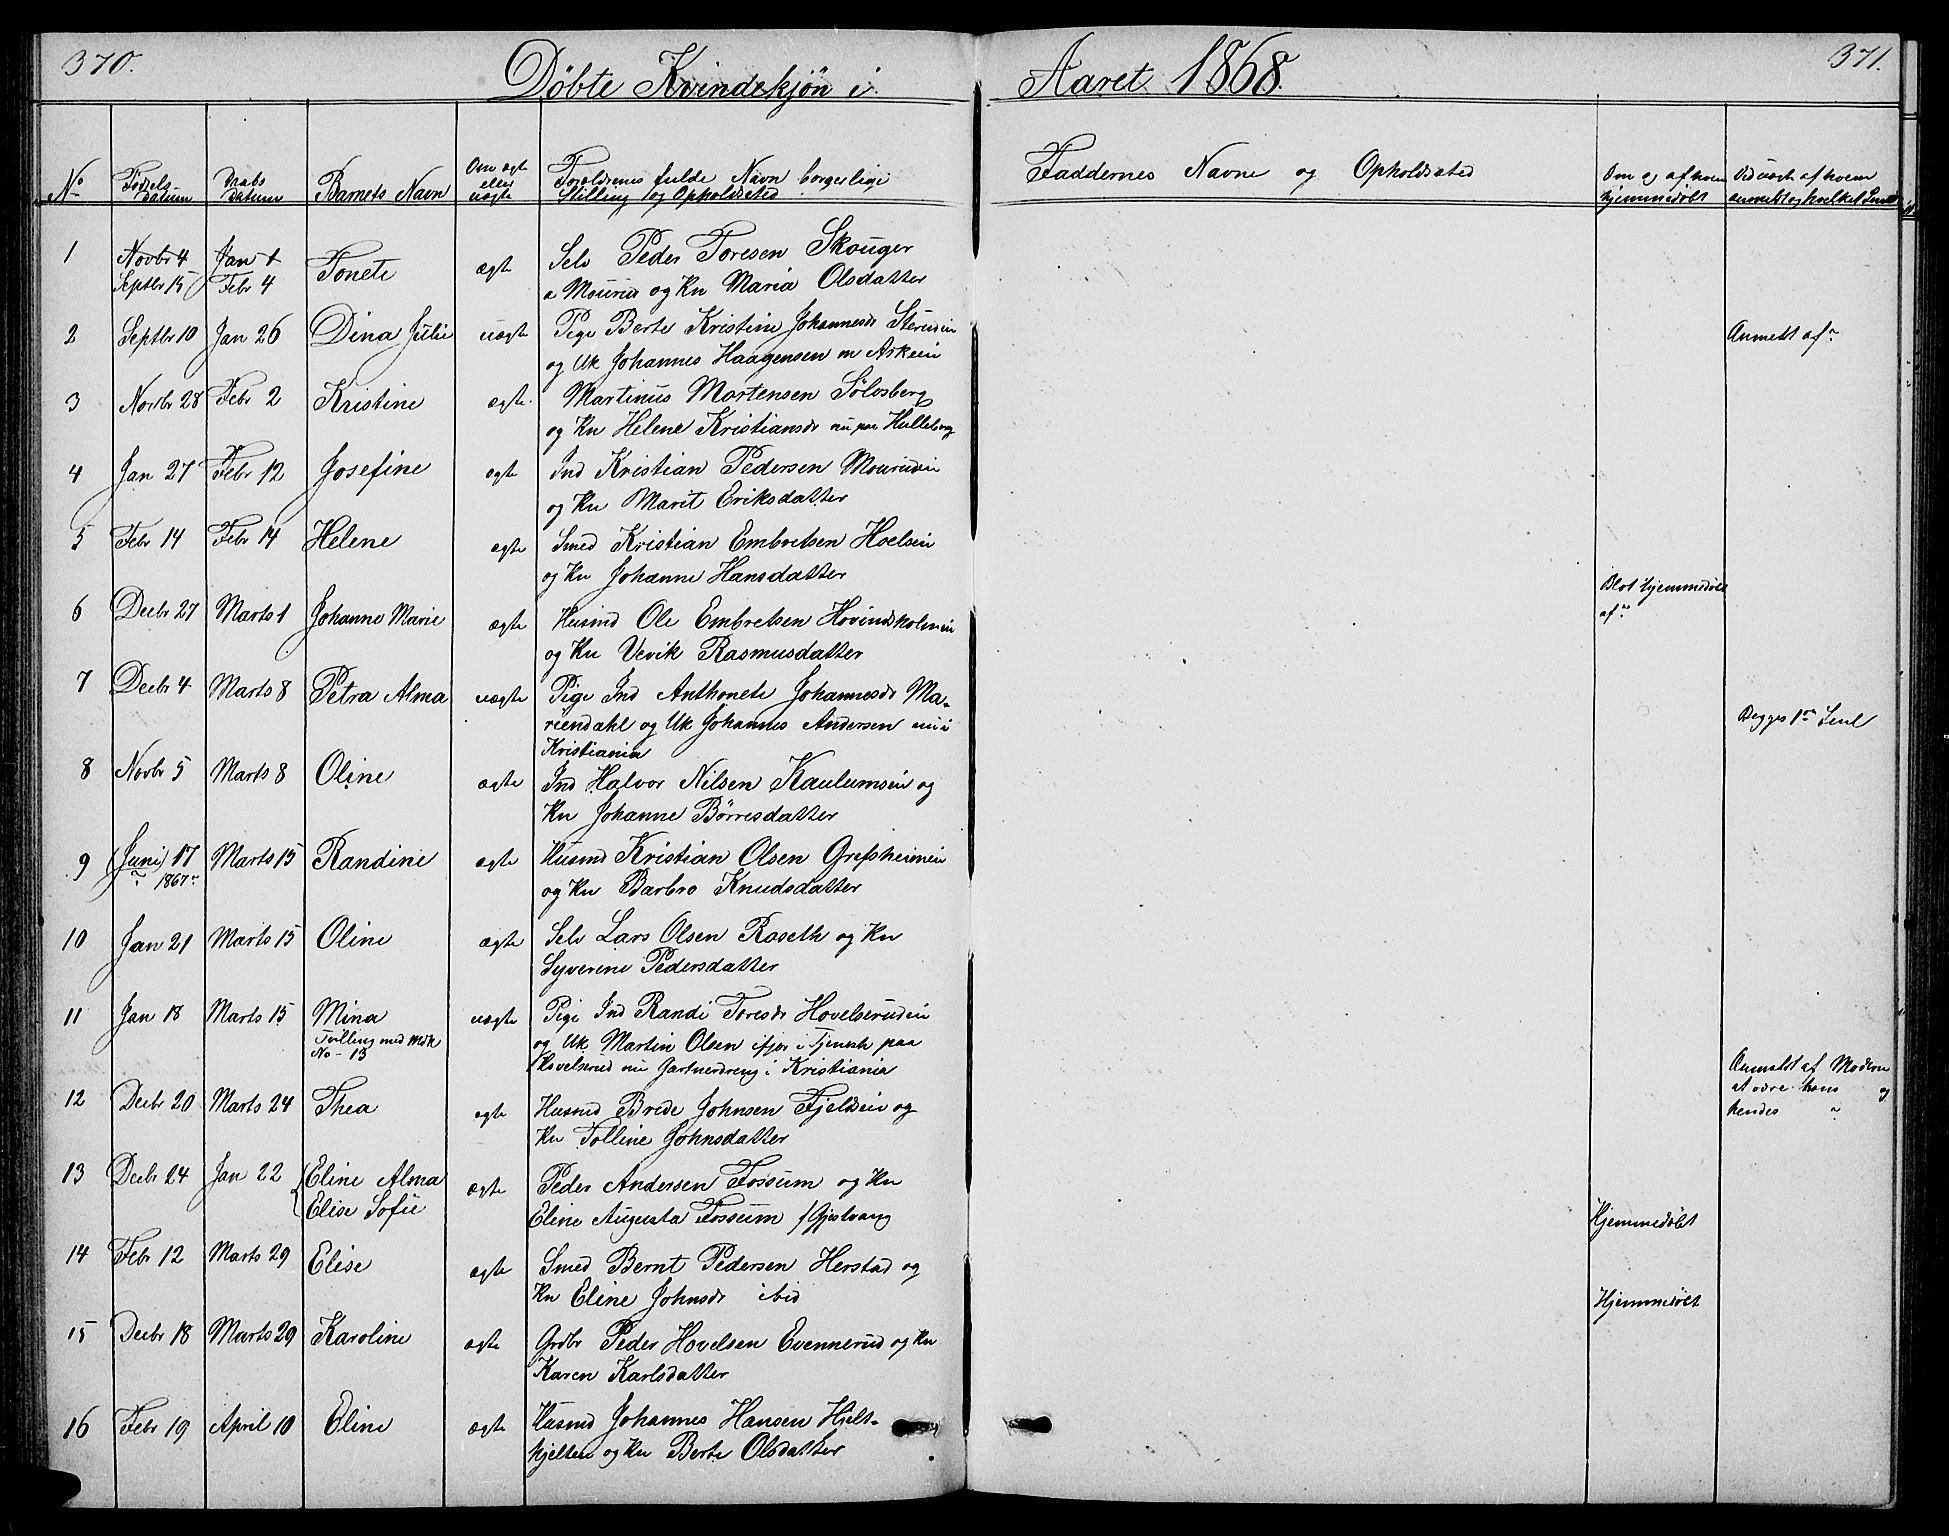 370.
Döbte Kvindekjön i
Aaret 1868.
371.
No
Födsels Datum
Daabs Datum
Barnets Navn
Om ægte eller uægte
Forældrenes fulde Navn borgerlige
Stilling og Opholdssted
Faddernes Navne og Opholdssted
Om og af hvem
hjemmedöbt
Ved uægte af hvem
anmeldt og hvilket
1 Novbr 4 Jan 1 Tonete ægte Selv Peder Toresen Skouger
Septbr 15 Febr 4 og Kn Maria Olsdatter
2 Septbr 10 Jan 26 Dina Julie uægte Pige Berte Kristine Johannesdr
og Uk Johannes Haagensen
Anmeldt af
3 Novbr 28 Febr 2 Kristine ægte Martinus Mortensen Sölvsberg
og Kn Helene Kristiansdr nu paa
4 Jan 27 Febr 12 Josefine ægte Ind Kristian Pedersen
og Kn Marit Eriksdatter
5 Febr 14 Febr 14 Helene ægte Smed Kristian Embretsen Hoelsei
og Kn Johanne Hansdatter
Blot hjemmedöbt
af
6 Decbr 27 Marts 1 Johanne Marie ægte Husmd Ole Embretsen
og Kn Vevik Rasmusdatter
7 Decbr 4 Marts 8 Petra Alma uægte Pige Ind Anthonete Johannesdr Ma-
riendahl og Uk Johannes Andersen nu i
Kristiania
Begges 1ste
8 Novbr 5 Marts 8 Oline ægte Ind Halvor Nilsen Kaulumsei og
Kn Johanne Börresdatter
9 Juni 17 Marts 15 Randine ægte Husmd Kristian Olsen Grefsheimei
1867
og Kn Barbro Knudsdatter
10 Jan 21 Marts 15 Oline ægte Selv Lars Olsen Roseth og Kn
Syverine Pedersdatter
11 Jan 18 Marts 15 Mina uægte Pige Ind Randi Toresdr Hovelserudei
Tvilling med Mdk
No 13
og Uk Martin Olsen ifjor i Tjeneste paa
Hovelserud nu Gartnerdreng i Kristiania
Anmeldt af Moderen
at være hans og
hendes
12 Decbr 20 Marts 24 Thea ægte Husmd Brede Johnsen Fjeldsei og
Kn Tolline Johnsdatter
13 Decbr 24 Jan 22 Eline Alma ægte Peder Andersen Fossum og Kn
Elise Sofie
Eline Augusta Fossum f Gjestvang
Hjemmedöbt
14 Febr 12 Marts 29 Elise ægte Smed Bernt Pedersen Herstad og
Kn Eline Johnsdr ibid
Hjemmedöbt
15 Decbr 18 Marts 29 Karoline ægte Grdbr Peder Hovelsen Evennerud og Kn
Karen Karlsdatter
16 Febr 19 April 10 Eline ægte Husmd Johannes Hansen Hjelt-
og Kn Berte Olsdatter